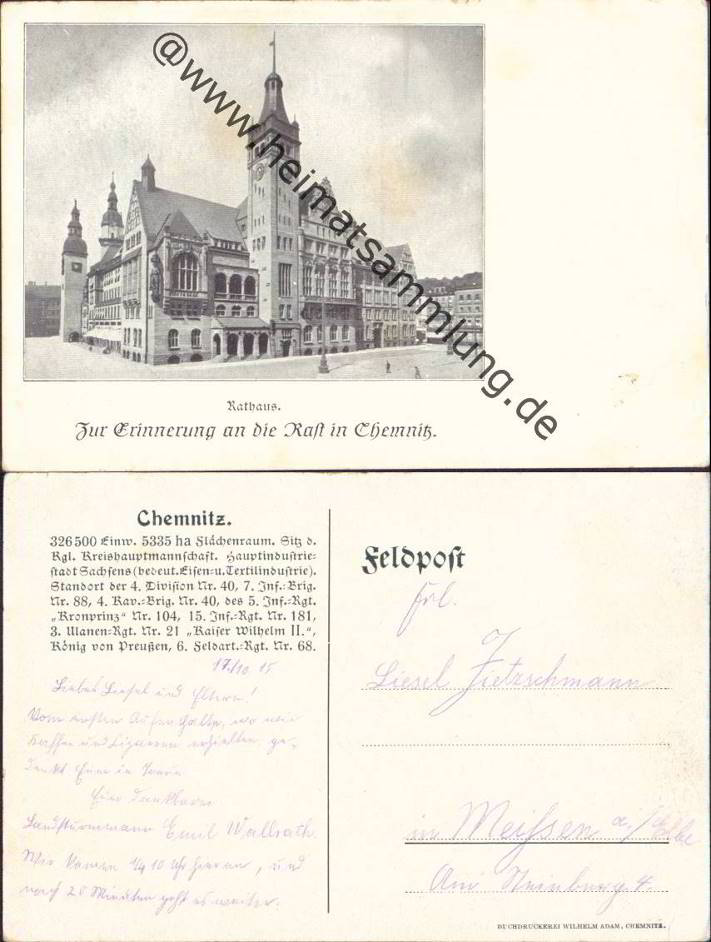 @www.heimatsammlung.de
Rathaus.
Zur Erinnerung an die Rast in Chemnitz.
Chemnitz.
326500 Einw. 5335 ha Flächenraum. Sitz d.
Kgl. Kreishauptmannschaft. Hauptindustrie-
stadt Sachsens (bedeut. Eisen- u. Textilindustrie).
Standort der 4. Division Nr. 40, 7. Inf.-Brig.
Nr. 88, 4. Kav.-Brig. Nr. 40, des 5. Inf.-Rgt.
„Kronprinz“ Nr. 104, 15. Inf.-Rgt. Nr. 181,
3. Ulanen-Rgt. Nr. 21 „Kaiser Wilhelm II.“,
König von Preußen, 6. Feldart.-Rgt. Nr. 68.
17/10 15
Liebes Liesel und Eltern!
Vom ersten Aufenthalte, wo wir
Kaffee und Zigarren erhielten, ge-
denkt Euer in Treue
Euer dankbarer
Landsturmmann Emil Wallrath
Wir kamen 1/4 10 Uhr hier an, und
nach 20 Minuten geht es weiter.
Feldpost
Frl.
Liesel Zietzschmann
in Meissen a./Elbe
Am Steinberg 4.
BUCHDRUCKEREI WILHELM ADAM, CHEMNITZ.